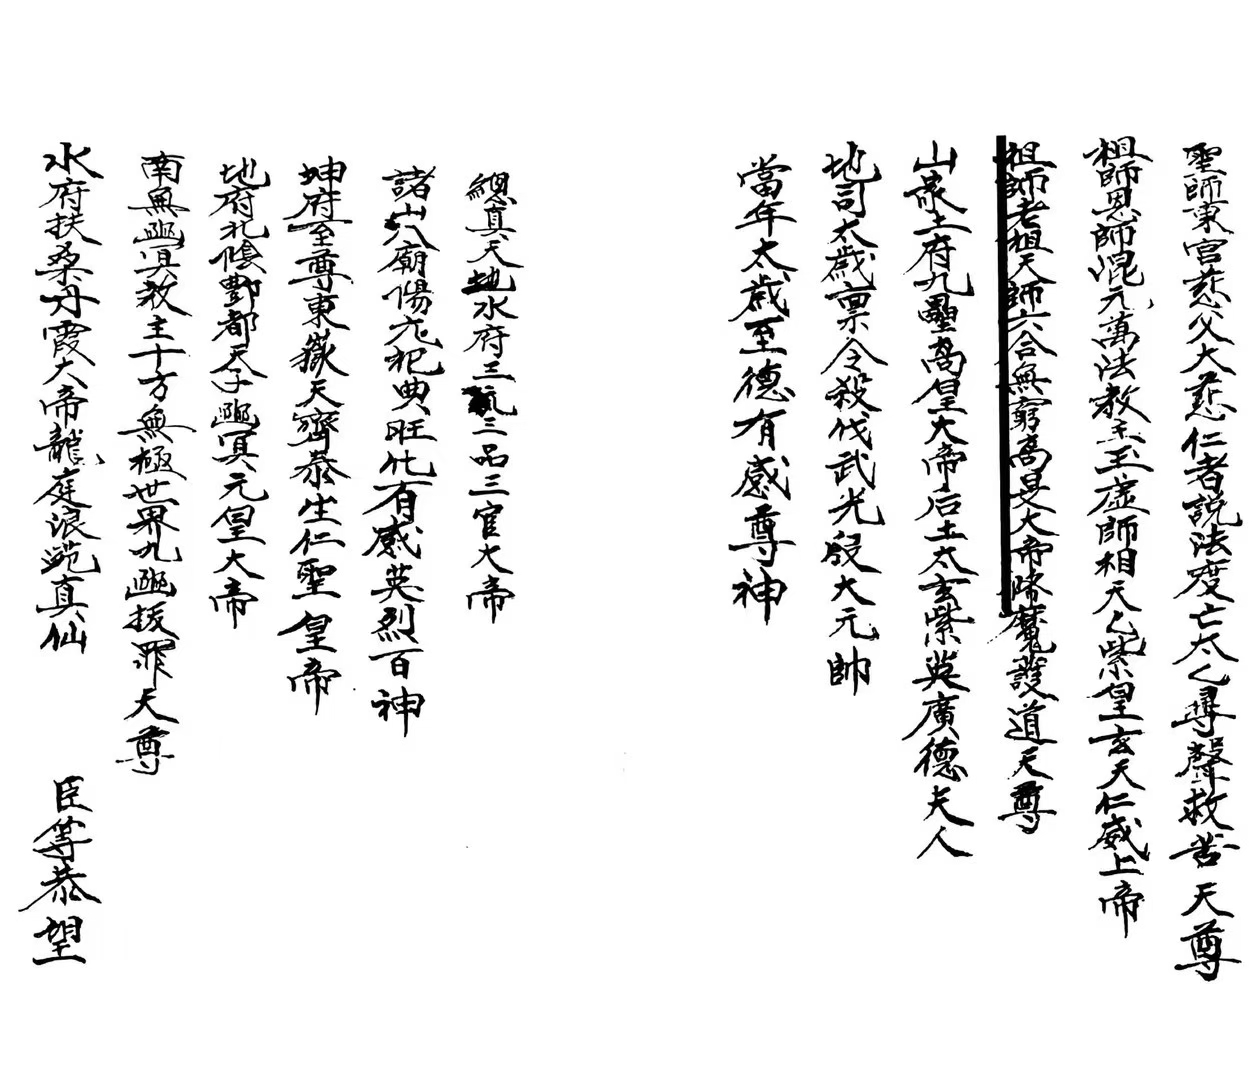 聖師東宮慈父大悲仁者說法度亡太乙尋聲救苦天尊
祖師恩師混元萬法教主玉虛師相天乙紫皇玄天仁威上帝
祖師老祖天師六合無窮高旻大帝降魔護道天尊
山泉土府九壘高皇大帝后土太玄紫英廣德夫人
地司太歲禀令殺伐武光殷大元帥
當年太歲至德有感尊神
總真天地水府三元三品三官大帝
諸山八廟陽元祀典旺化有感英烈百神
坤府至尊東嶽天齊泰生仁聖皇帝
地府北陰酆都天子幽冥元皇大帝
南無幽冥教主十方無極世界九幽拔罪天尊
水府扶桑丹霞大帝龍庭浪苑真仙 臣等恭望